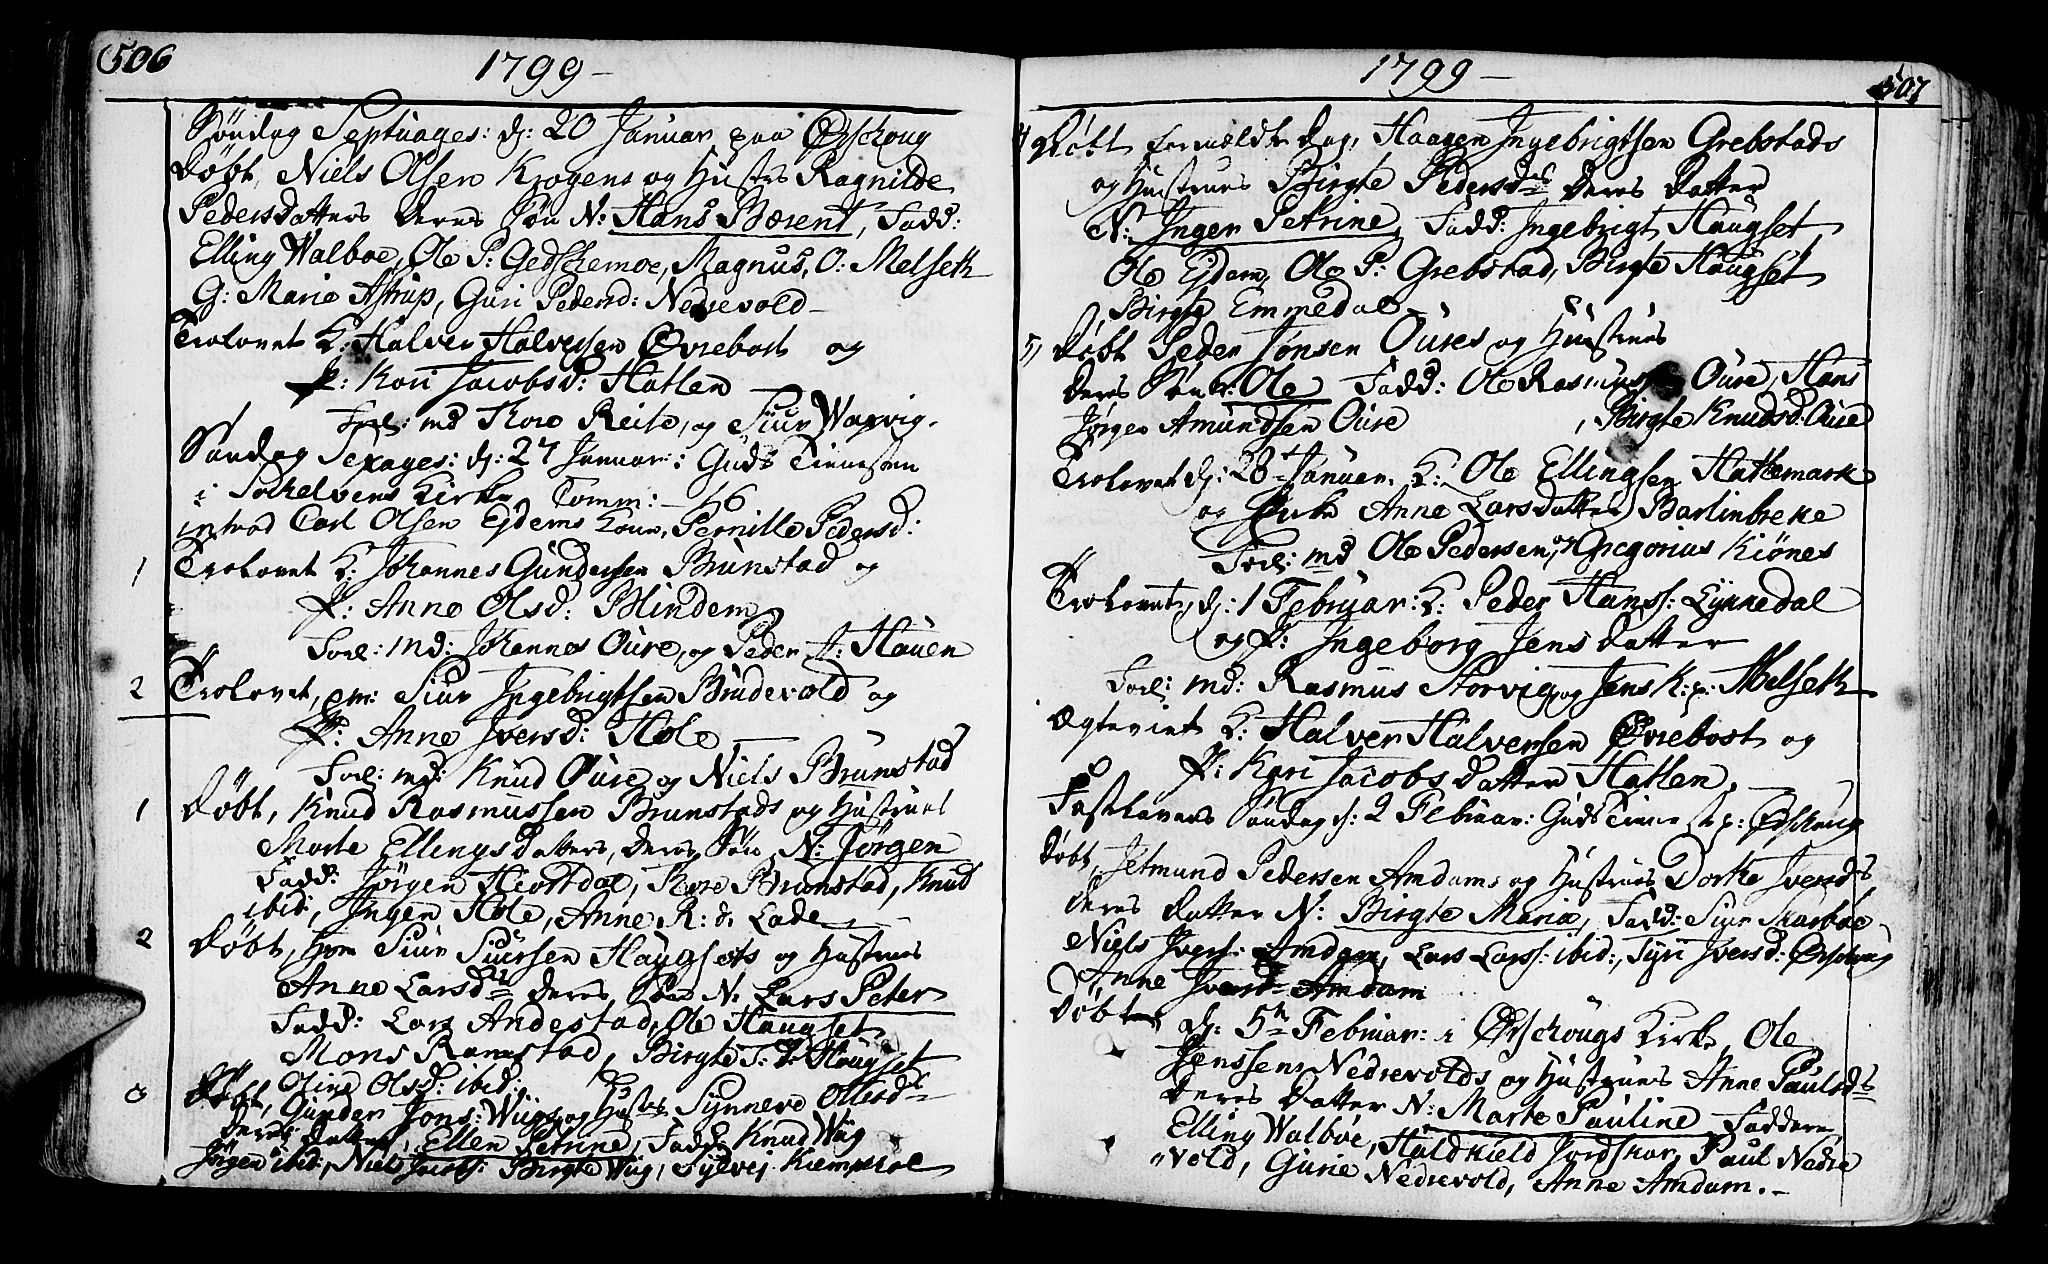 506
1799 –
Søndag Septuages: dj: 20 Januar paa Ørschoug
Døbt, Niels Olsen Krogens og Hustrs Ragnilde
Pedersdatters deres Søn N: Hans Bærent, Fadd:
Elling Walboe, Ole P: Gedschemoe, Magnus O: Melseth
G: Marie Astrup, Guri Pedersd: Nedrevold –
Trolovet K: Halver Halversen Øvrebost og
P: Kari Jacobsd: Hatlen
Forl: md Thore Reite, og Siur Wagvig.
Søndag Sexages: dj: 27 Januar: Guds Tienesten
i Sochelvens Kirke Comm: – 46
introd Carl Olsen Ejdems Kone, Pernille Pedersd:
1 Trolovet K: Johannes Gundersen Brunstad og
P: Anne Olsd: Blindem
Forl: md: Johannes Oure, og Peder A: Hauen
2 Trolovet, em: Siur Ingebrigtsen Brudevold og
P: Anne Iversd: Hole
Forl: md: Knud Oure og Niels Brunstad
1 Døbt, Knud Rasmussen Brunstads og Hustrues
Marte Ellingsdatters, deres Søn N: Jørgen
Fadd: Jørgen Hiortdal, Thore Brunstad, Knud
ibid:, Inger Hole, Anne R: d. Lade
2 Døbt, Siur Siursen Haugsets og Hustrues
Anne Larsd: deres Søn N: Lars Peter
Fadd: Lars Andestad, Ole Haugset
Mons Ramstad, Birgte S: d: Haugset
Oline Olsd: ibid:
3 Døbt, Gunder Jons: Wiigs og Hustrs Synneve Ottesd:
deres datter, Ellen Petrine, Fadd: Knud Wiig
Jørgen ibid:, Niels Jacobs: Birgte Wiig, Sylvej Kiemphol
1799 –
507
4 Døbt formeldte Dag, Haagen Ingebrigtsen Grebstads
og Hustrues Birgte Pedersd: deres Datter
N: Inger Petrine, Fadd: Ingebrigt Haugset
Ole Ejdem, Ole P: Grebstad, Birgte Haugset
Birgte Emmedal
5) Døbt Peder Jonsen Oures og Hustrues
deres Søn N: Ole Fadd: Ole Rasmus Oure, Hans
Jørgen Amundsen Oure , Birgte Knudsd: Oure
Trolovet dj: 28 Januar. K: Ole Ellingsen Hattemark
og Anne Larsdatter Barlinbreke
Forl: md Ole Pedersen, og Gregorius Kiønes
Trolovet, dj: 1 Februar: K: Peder Hanss: Lynnedal
og P: Ingeborg Jens datter
Forl: md: Rasmus Storvig og Jens K: p: Melseth
Ægteviet K: Halver Halversen Øvrebost og
P: Kari Jacobs datter Hatlen.
Fastelavens Søndag d: 2 Februar: Guds Tieneste p: Ørschoug
Døbt, Jetmund Pedersen Amdams og Hustrues Dorte Iversds
deres datter N: Birgte Maria, Fadd: Siur Skarboe
Niels Ivers: Amdam, Lars Larss: ibid:, Syri Iversd: Ørschoug
Anne Iversd: Amdam
Døbt dj: 5te Februar: i Ørschougs Kirke Ole
Jenssens Nedrevolds og Hustrues Anne Paulsds
deres datter N: Marte Pauline Faddere
Elling Walboe, Haldkield Jordskar, Paul Nedre
"vold, Gurie Nedrevold, Anne Amdam. –